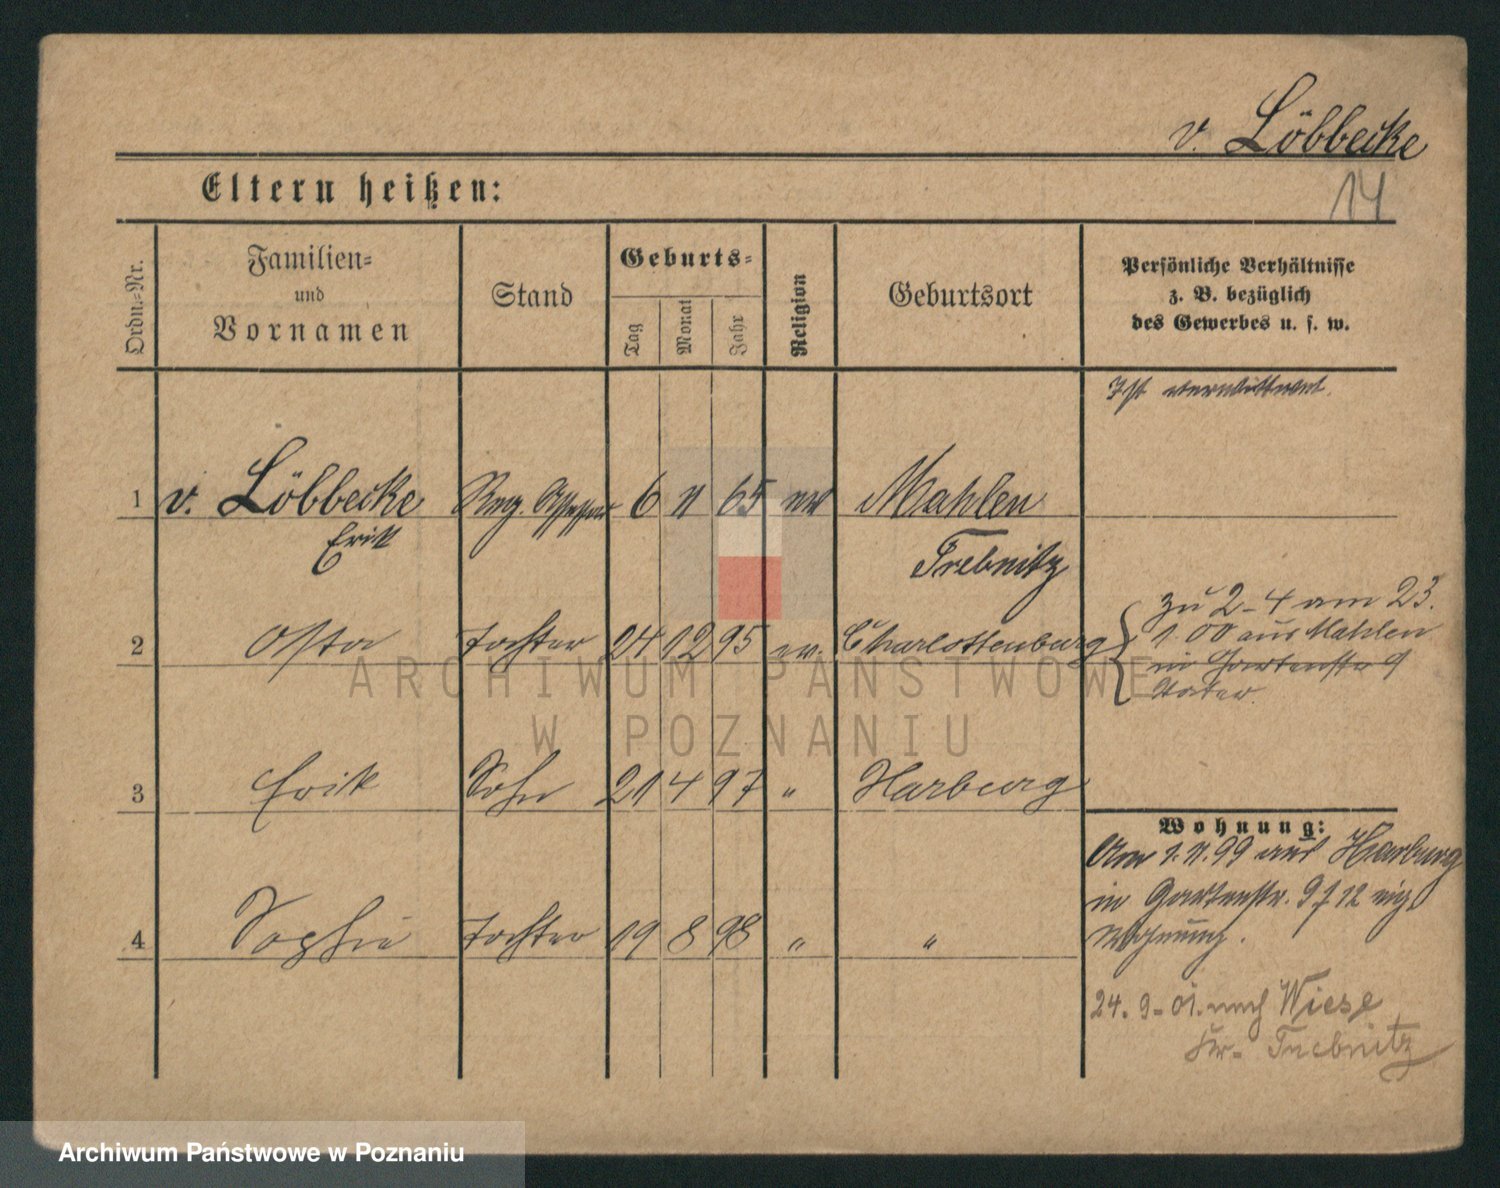 v. Löbbecke
14
Eltern heißen:
Ordn.-Nr.
Familien-
und
Vornamen
Stand
Geburts-
Tag
Monat
Jahr
Religion
Geburtsort
Persönliche Verhältnisse
z. B. bezüglich
des Gewerbes u. s. w.
Ist verwittwet.
1 v. Löbbecke Reg. Assessor 6 11 65 ev Mahlen
Erik
Trebnitz
2 Asta Tochter 24 12 95 ev. Charlottenburg
zu 2-4 am 23.
1.00 aus Mahlen
in Gartenstr 9
Vater.
3 Erik Sohn 21 4 97 " Harburg
4 Sophie Tochter 19 8 98 " "
Wohnung:
Am 1.11.99 aus Harburg
in Gartenstr. 9 12 eig
Wohnung.
24. 9-01. nach Wiese
Kr- Trebnitz
ARCHIWUM PAŃSTWOWE
W POZNANIU
Archiwum Państwowe w Poznaniu